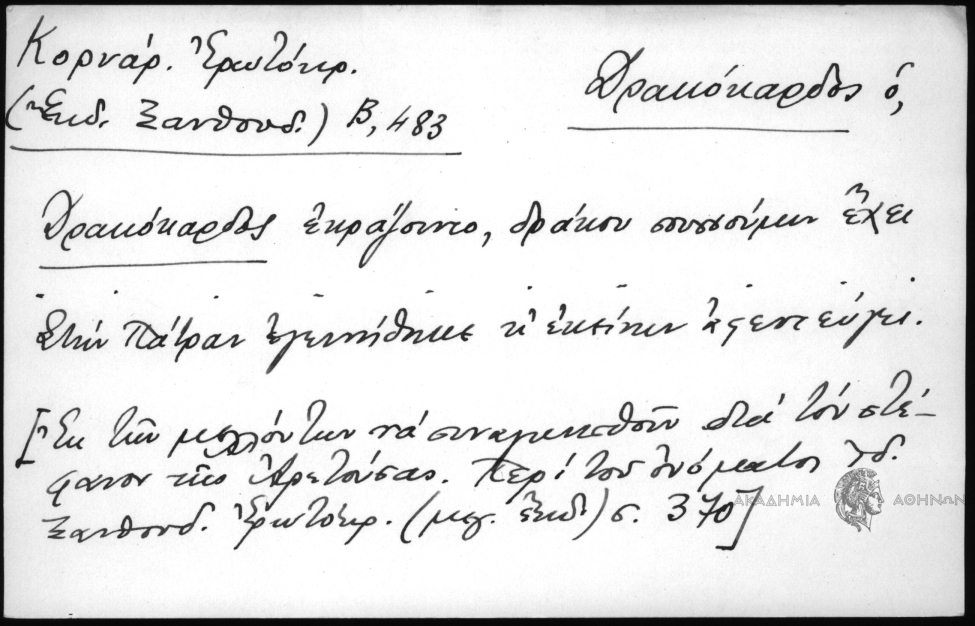 Κορνάρ. Ἐρωτόκρ.
(Ἔκδ. Ξανθουδ.) Β, 483
Δρακόκαρδος ὁ,
Δρακόκαρδος ἐκράζουντο, δράκου σουσσούμιν ἔχει
Στὴν Πάτραν ἐγεννήθηκε κ' ἐκείνην ἀφεντεύγει.
[Ἐκ τῶν μελλόντων νά συναγωνισθοῦν διά τόν στέ-
φανον τῆς Ἀρετούσας. Περί τοῦ ὀνόματος ἰδ.
Ξανθουδ. Ἐρωτόκρ. (μεγ. ἔκδ.) σ. 370]
ΑΚΑΔΗΜΙΑ ΑΘΗΝΩΝ